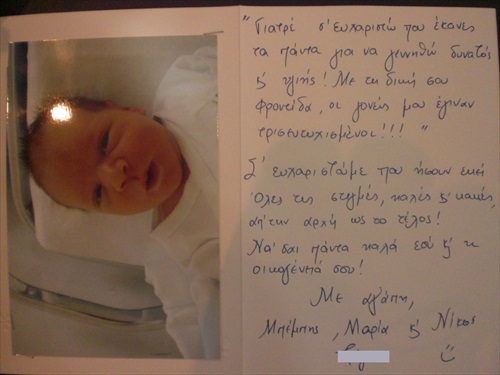 "Γιατρέ σ'ευχαριστώ που έκανες
τα πάντα για να γεννηθώ δυνατός
& υγιής! Με τη δική σου
φροντίδα, οι γονείς μου έγιναν
τρισευτυχισμένοι!!! "
Σ' ευχαριστούμε που ήσουν εκεί
όλες τις στιγμές, καλές & κακές,
απ'την αρχή ως το τέλος!
Να'σαι πάντα καλά εσύ & η
οικογένειά σου!
Με αγάπη,
Μπέμπης, Μαρία & Νίκος